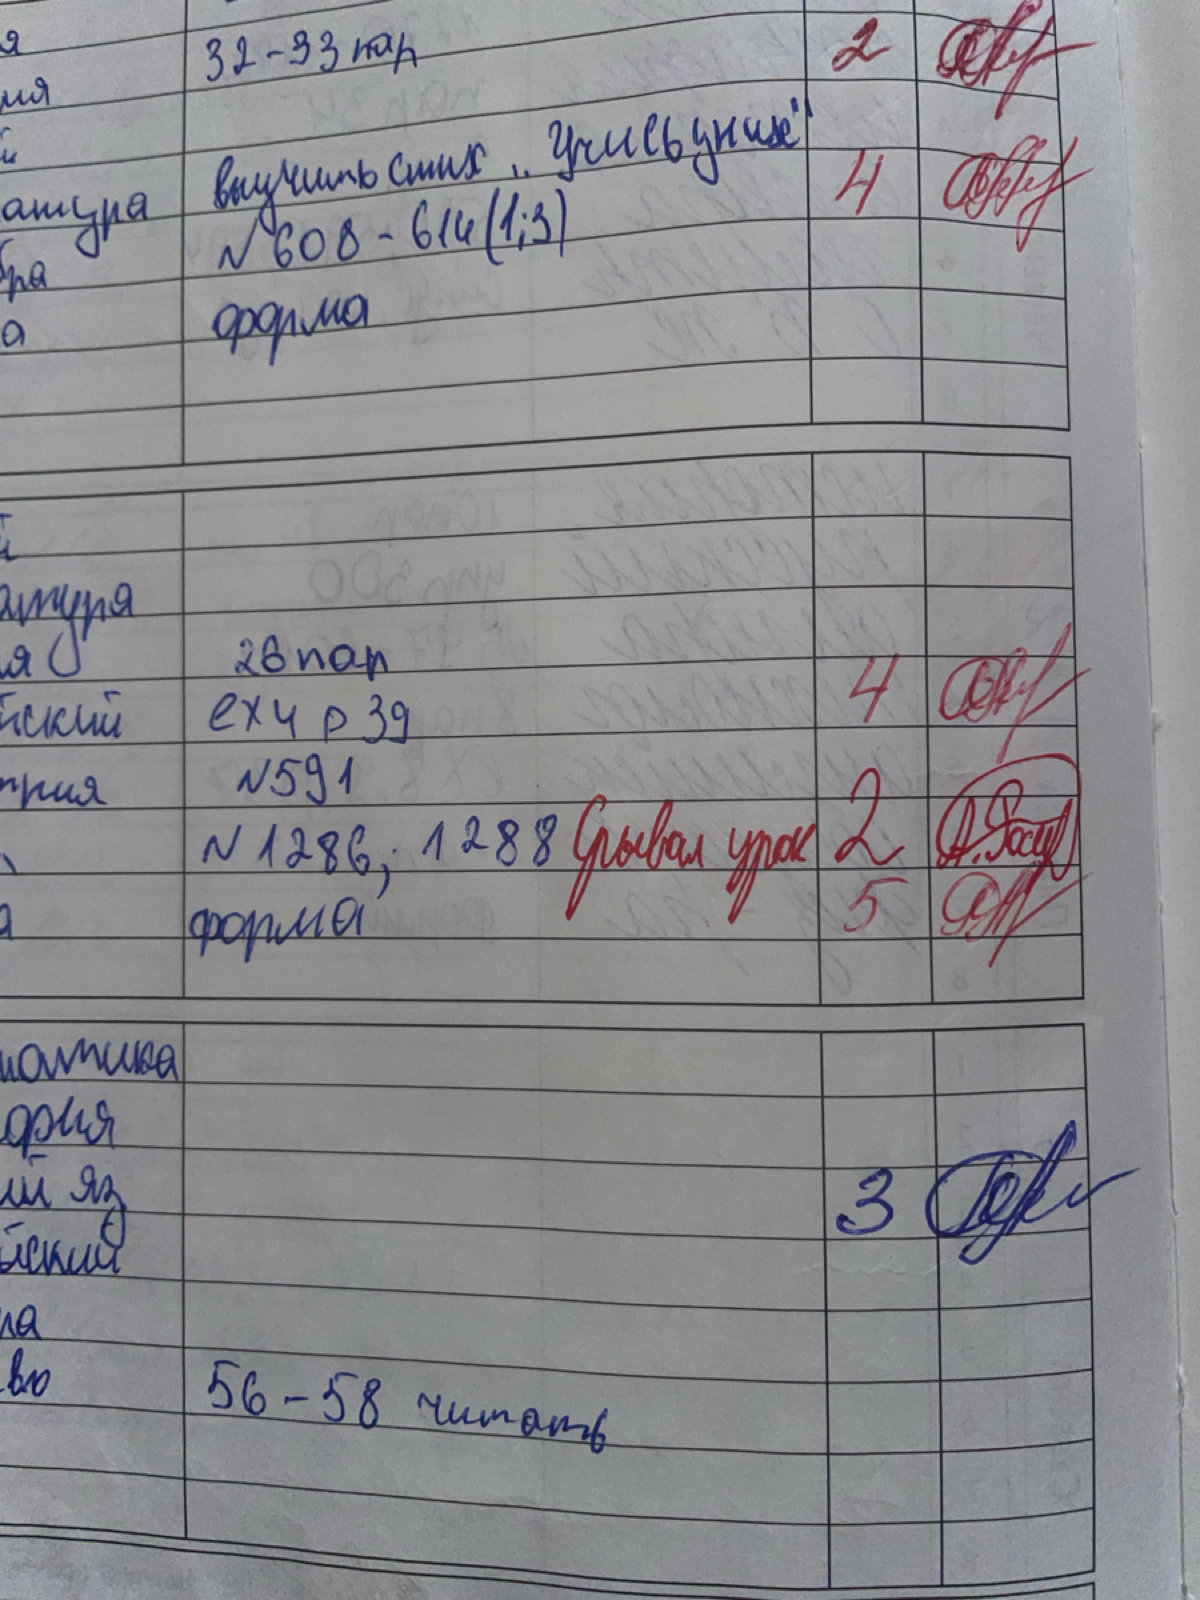 я 32-33 пар 2
ия
й
атура выучить стих „Учись у них" 4
бра №608-614(1;3)
а форма
й
атура
ия 26 пар 4
йский ex4 p 39
трия №591
№1286, 1288 Срывал урок 2
а форма 5
матика
ория
ий яз 3
йский
ла
во 56-58 читать